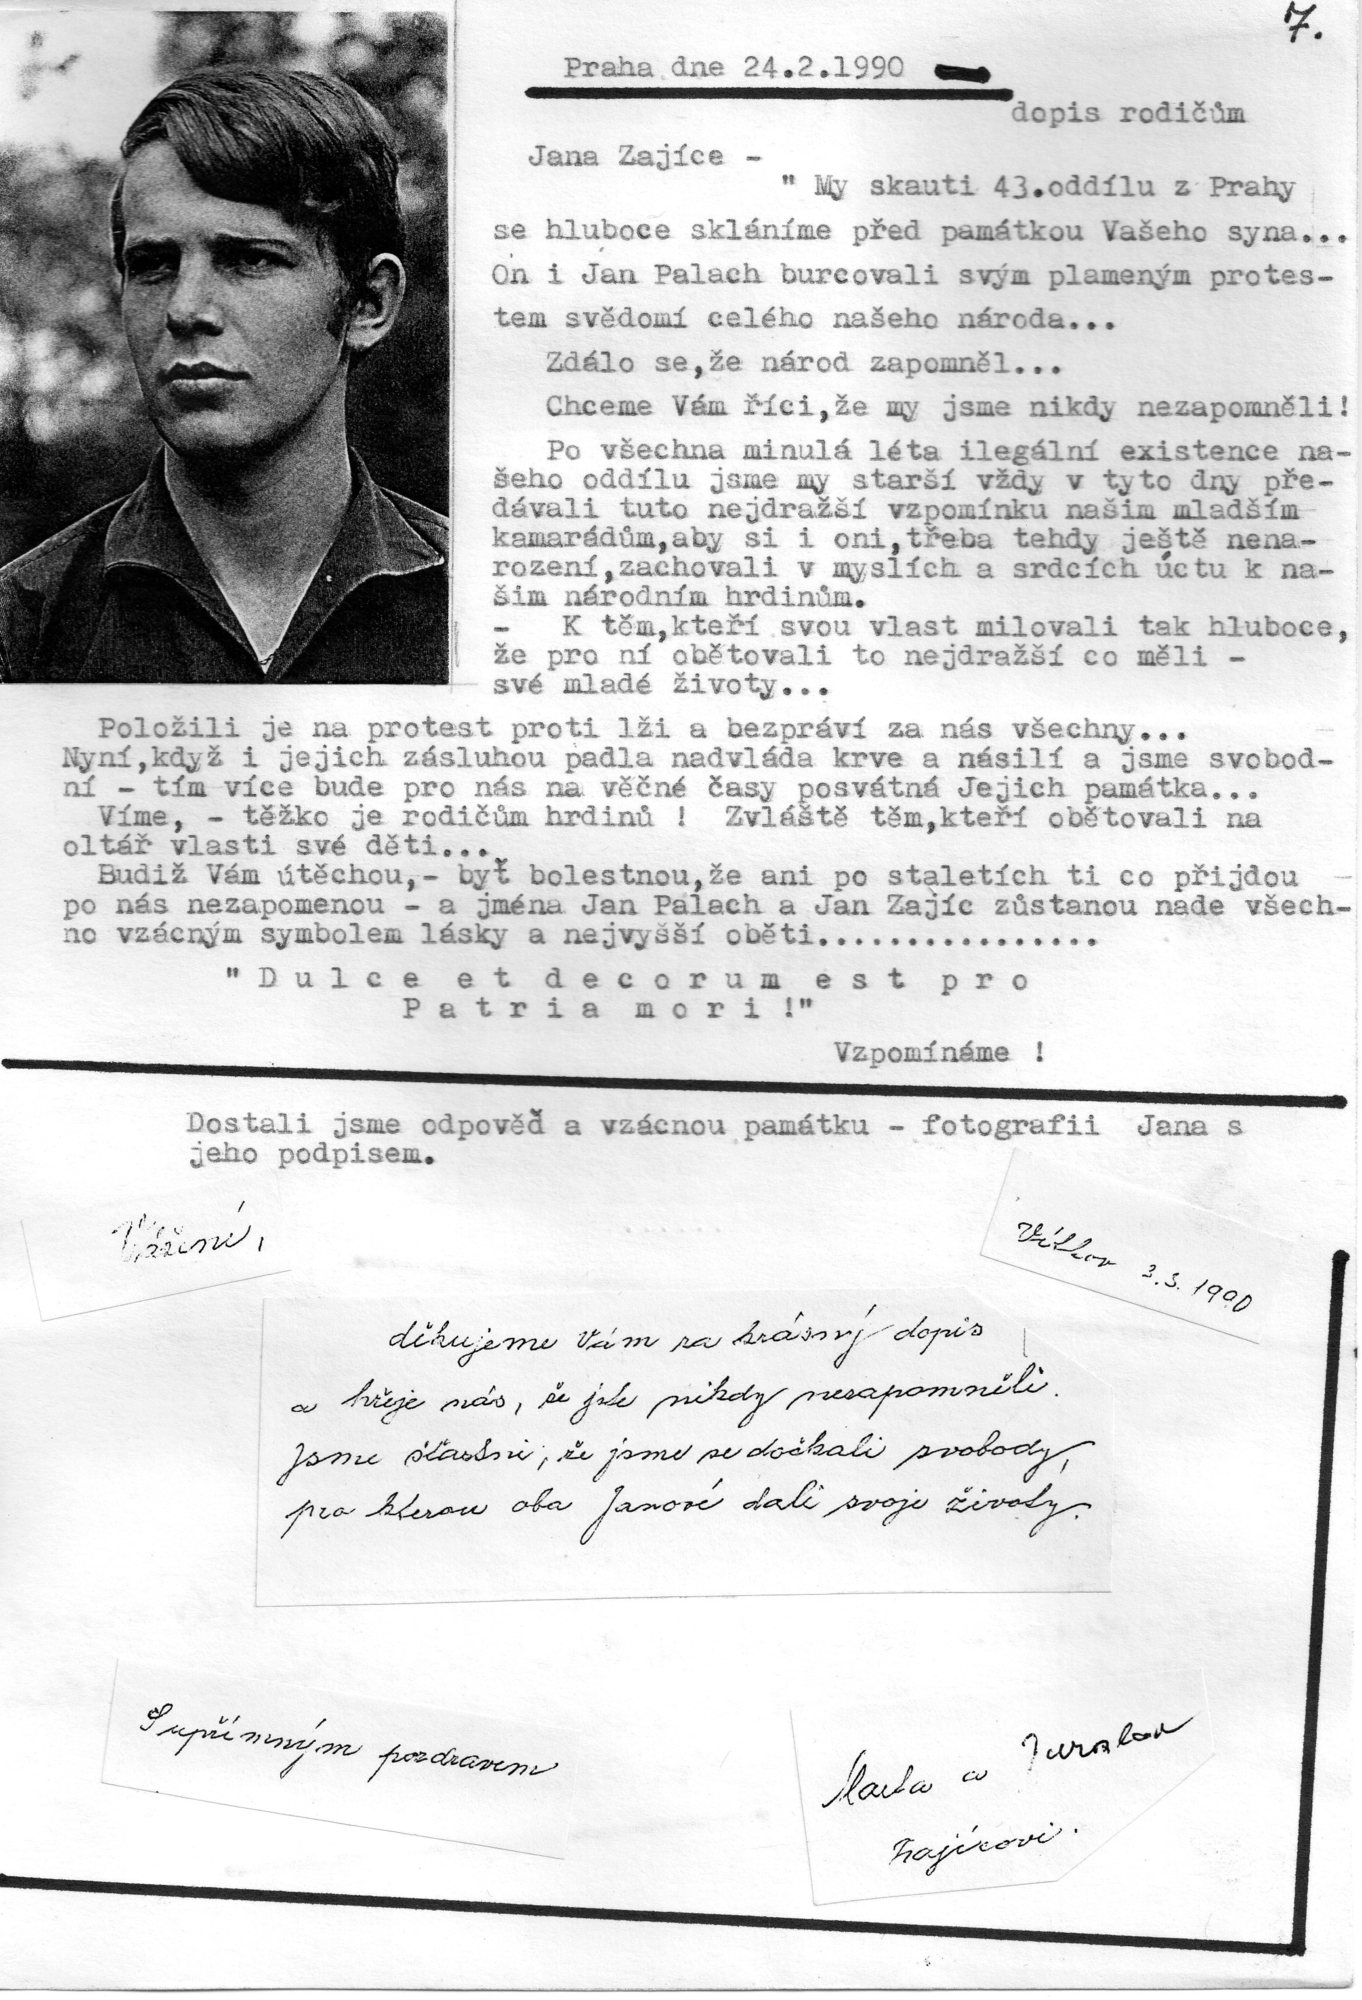 7.
Praha dne 24.2.1990
dopis rodičům
Jana Zajíce -
" My skauti 43.oddílu z Prahy
se hluboce skláníme před památkou Vašeho syna...
On i Jan Palach burcovali svým plameným protes-
tem svědomí celého našeho národa...
Zdálo se,že národ zapomněl...
Chceme Vám říci,že my jsme nikdy nezapomněli!
Po všechna minulá léta ilegální existence na-
šeho oddílu jsme my starší vždy v tyto dny pře-
dávali tuto nejdražší vzpomínku našim mladším
kamarádům,aby si i oni,třeba tehdy ještě nena-
rození,zachovali v myslích a srdcích úctu k na-
šim národním hrdinům.
- K těm,kteří svou vlast milovali tak hluboce,
že pro ní obětovali to nejdražší co měli -
své mladé životy...
Položili je na protest proti lži a bezpráví za nás všechny...
Nyní,když i jejich zásluhou padla nadvláda krve a násilí a jsme svobod-
ní - tím více bude pro nás na věčné časy posvátná Jejich památka...
Víme, - těžko je rodičům hrdinů ! Zvláště těm,kteří obětovali na
oltář vlasti své děti...
Budiž Vám útěchou,- byť bolestnou,že ani po staletích ti co přijdou
po nás nezapomenou - a jména Jan Palach a Jan Zajíc zůstanou nade všech-
no vzácným symbolem lásky a nejvyšší oběti................
" D u l c e e t d e c o r u m e s t p r o
P a t r i a m o r i !"
Vzpomínáme !
Dostali jsme odpověď a vzácnou památku - fotografii Jana s
jeho podpisem.
Vážení,
Vítkov 3.3.1990
děkujeme Vám za krásný dopis
a hřeje nás, že jste nikdy nezapomněli.
Jsme šťastni, že jsme se dočkali svobody,
pro kterou oba Janové dali svoje životy.
S upřímným pozdravem
Marta a Jaroslav
Zajícovi.